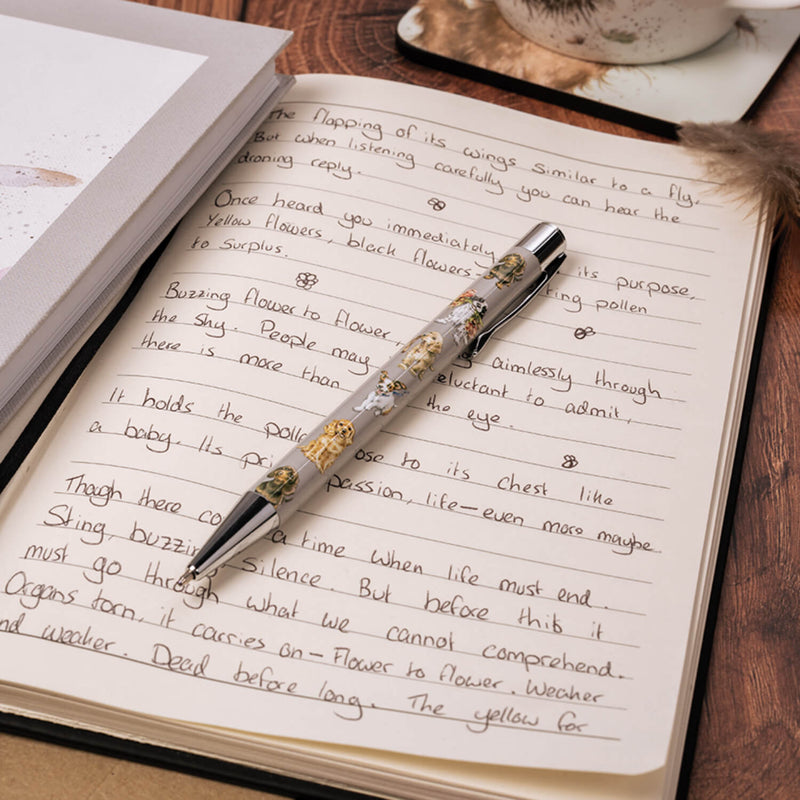 The flapping of its wings similar to a fly,
But when listening carefully you can hear the
droning reply.
Once heard you immediately its purpose,
Yellow flowers, black flowers- ting pollen
to surplus.
Buzzing flower to flower, aimlessly through
the sky. People may eluctant to admit,
there is more than the eye.
It holds the polle ose to its chest like
a baby. Its pri passion, life—even more maybe.
Though there co a time when life must end.
Sting, buzzin Silence. But before this it
must go through what we cannot comprehend.
Organs torn, it carries on—flower to flower. Weaker
nd weaker. Dead before long. The yellow for